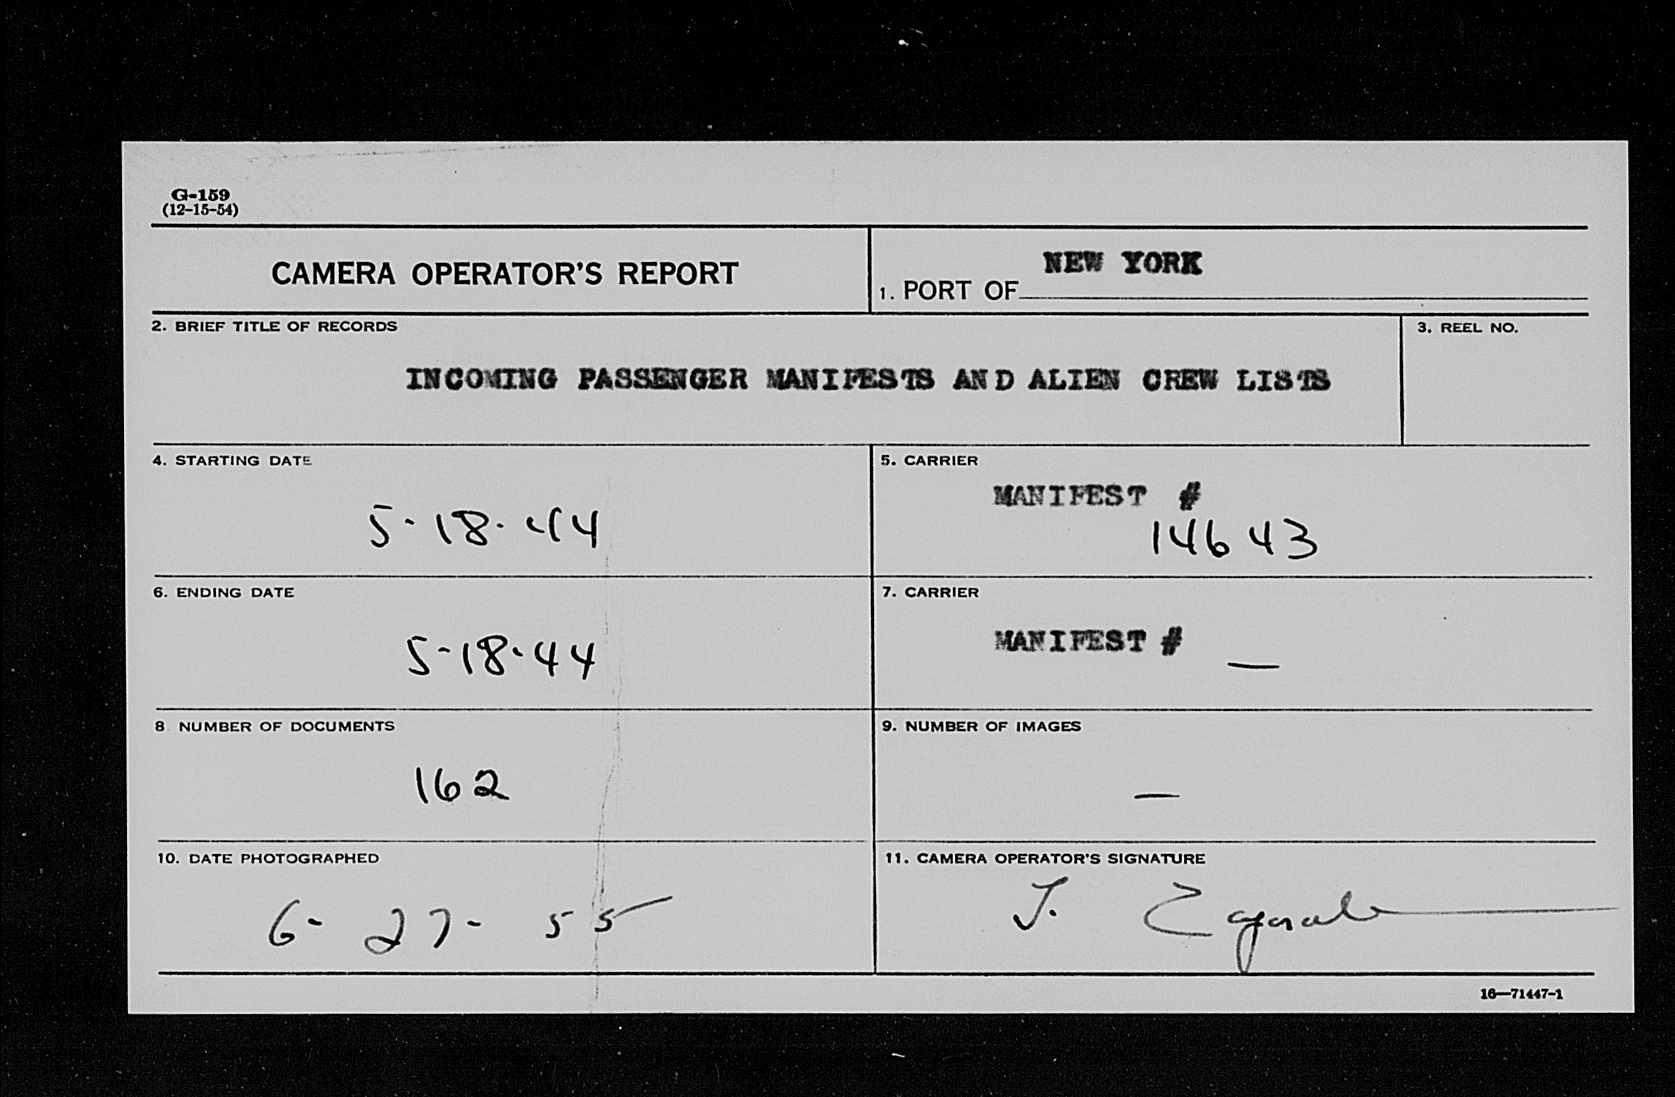 G-159
(12-15-54)
CAMERA OPERATOR'S REPORT
1. PORT OF NEW YORK
2. BRIEF TITLE OF RECORDS
3. REEL NO.
INCOMING PASSENGER MANIFESTS AND ALIEN CREW LISTS
4. STARTING DATE
5. CARRIER
MANIFEST #
5-18-44
14643
6. ENDING DATE
7. CARRIER
5-18-44
MANIFEST # —
8 NUMBER OF DOCUMENTS
9. NUMBER OF IMAGES
162
—
10. DATE PHOTOGRAPHED
11. CAMERA OPERATOR'S SIGNATURE
6-27-55
J.
16—71447-1